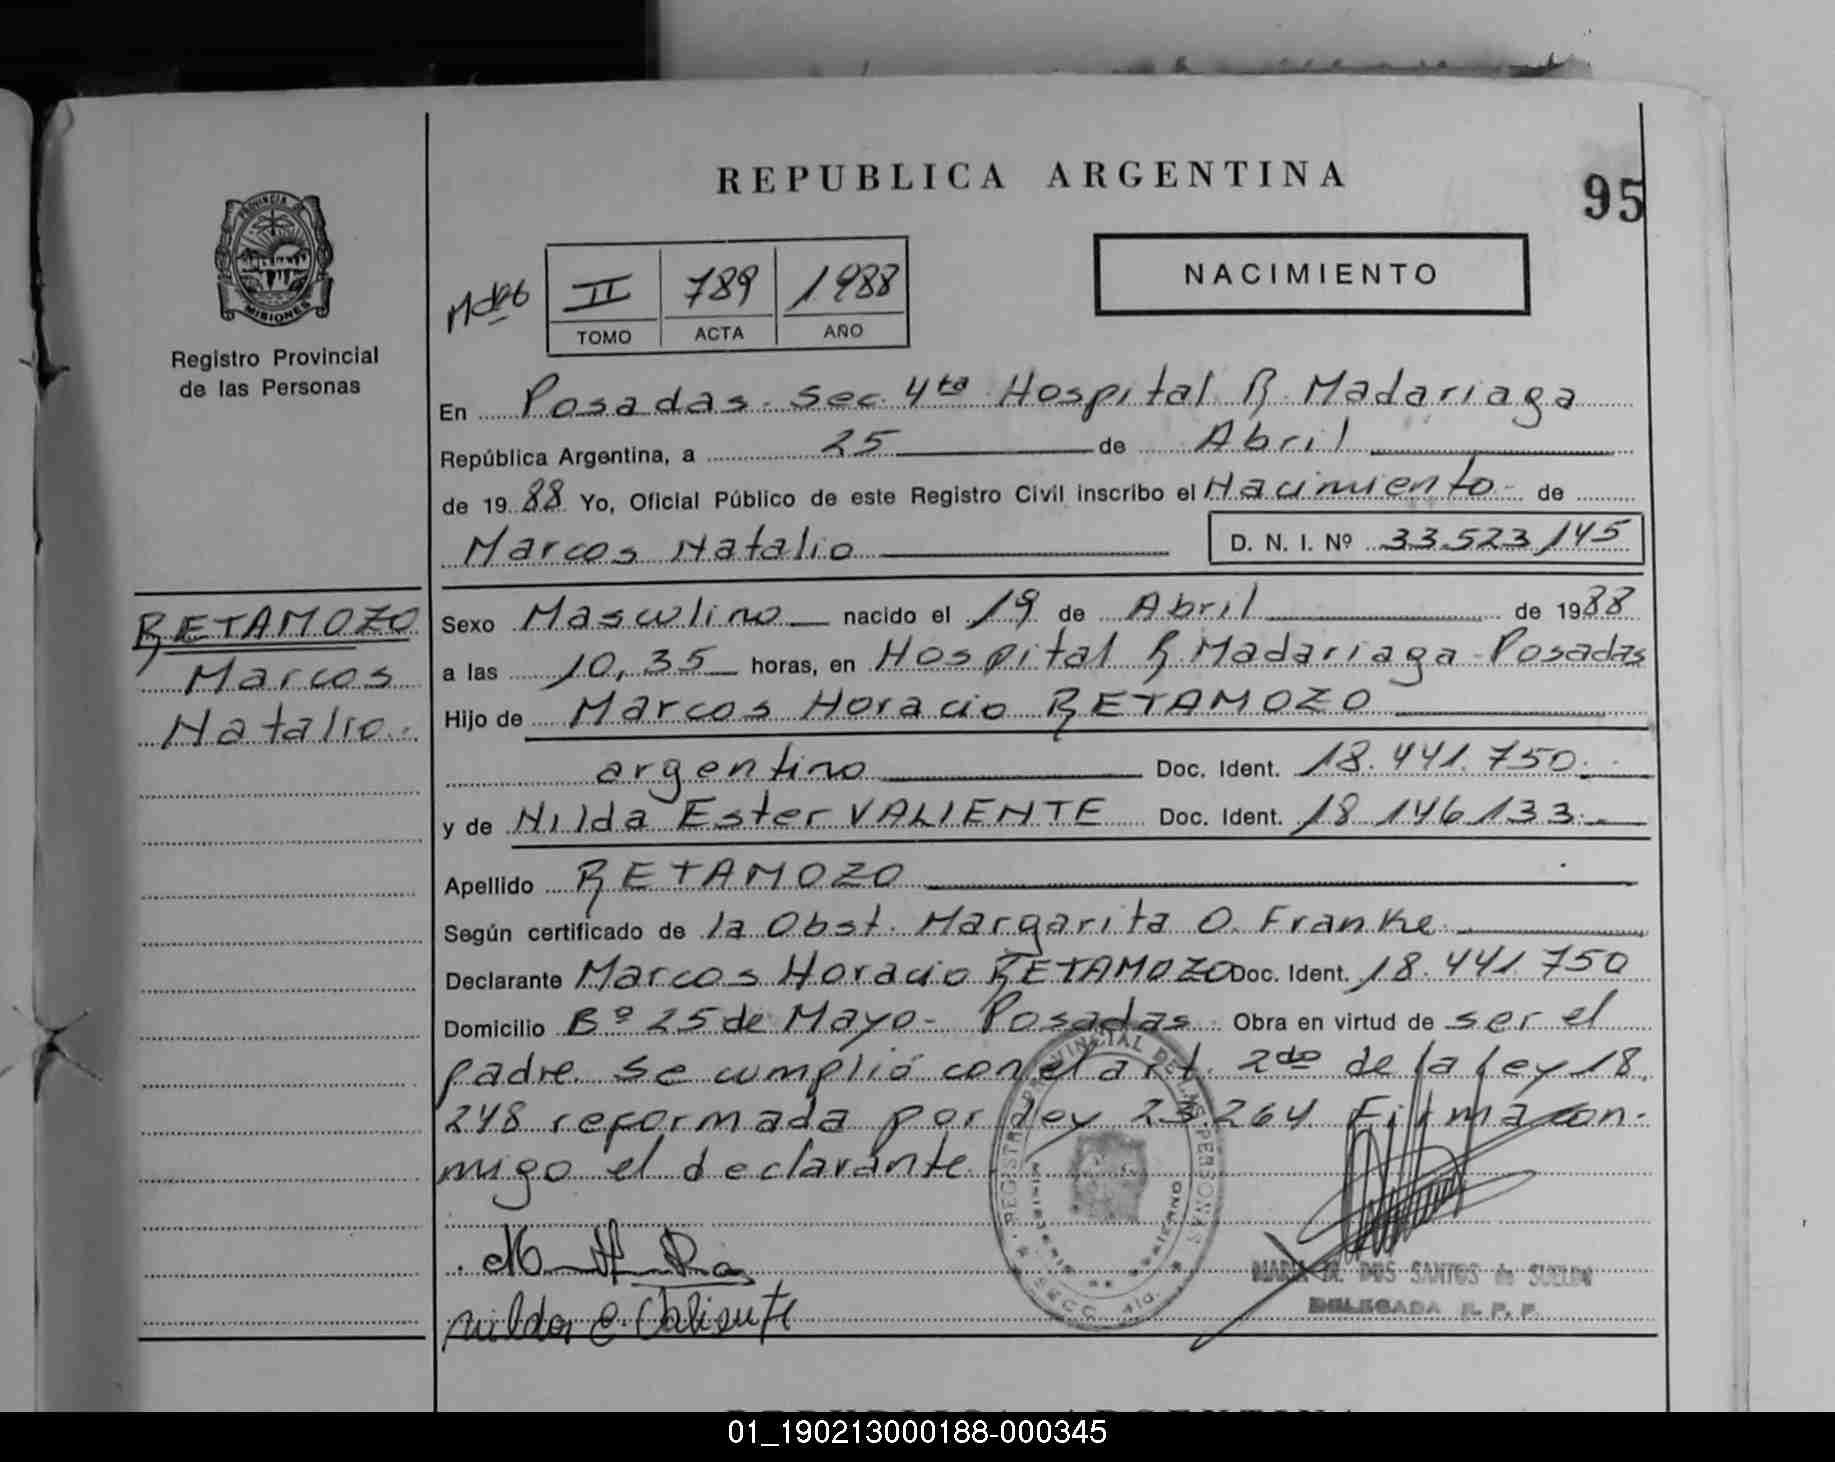 REPUBLICA ARGENTINA
95
PROVINCIA DE
MISIONES
Registro Provincial
de las Personas
NACIMIENTO
II 789 1988
TOMO ACTA AÑO
En Posadas. Sec. 4ta Hospital R. Madariaga
República Argentina, a 25 de Abril
de 1988 Yo, Oficial Público de este Registro Civil inscribo el Nacimiento de
Marcos Natalio D. N. I. Nº 33.523.145
RETAMOZO
Marcos
Natalio.
Sexo Masculino nacido el 19 de Abril de 1988
a las 10,35 horas, en Hospital R. Madariaga - Posadas
Hijo de Marcos Horacio RETAMOZO
argentino Doc. Ident. 18.441.750.
y de Nilda Ester VALIENTE Doc. Ident. 18.146.133.
Apellido RETAMOZO
Según certificado de la Obst. Margarita O. Franke
Declarante Marcos Horacio RETAMOZO Doc. Ident. 18.441.750
Domicilio Bº 25 de Mayo - Posadas. Obra en virtud de ser el
padre. Se cumplió con el art. 2do de la Ley 18.
248 reformada por Ley 23.264. Firma con-
migo el declarante.
nilda E. Valiente
REGISTRO PROVINCIAL DE LAS PERSONAS
MINISTERIO DE GOBIERNO
SECC. 4ta.
DOS SANTOS de
DELEGADA R. P. P.
01_190213000188-000345